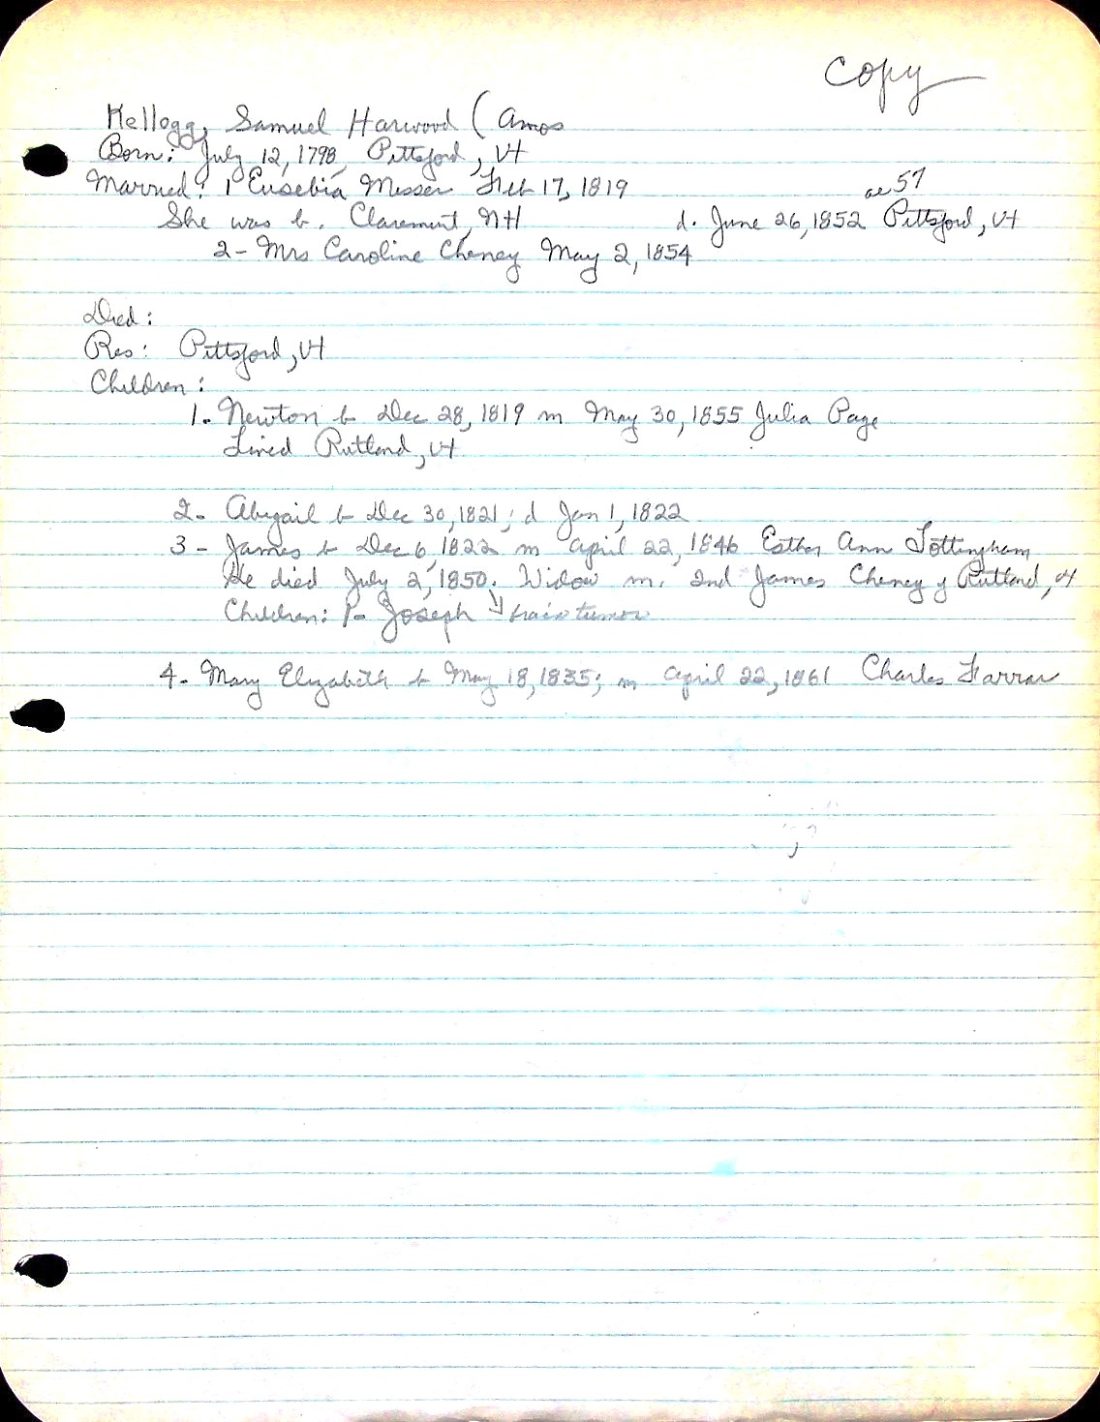 Copy
Kellogg, Samuel Harwood (Amos
Born: July 12, 1798, Pittsford, Vt
Married: 1 Eusebia Messer Feb 17, 1819
ae 57
She was b. Claremont, NH d. June 26, 1852 Pittsford, Vt
2- Mrs Caroline Cheney May 2, 1854
Died:
Res: Pittsford, Vt
Children:
1. Newton b Dec 28, 1819 m May 30, 1855 Julia Page
Lived Rutland, Vt
2- Abigail b Dec 30, 1821; d Jan 1, 1822
3- James b Dec 6, 1822 m April 22, 1846 Esther Ann Tottingham
He died July 2, 1850. Widow m. 2nd James Cheney of Rutland, Vt
Children: 1- Joseph brain tumor
4- Mary Elizabeth b May 18, 1835; m April 22, 1861 Charles Farrar